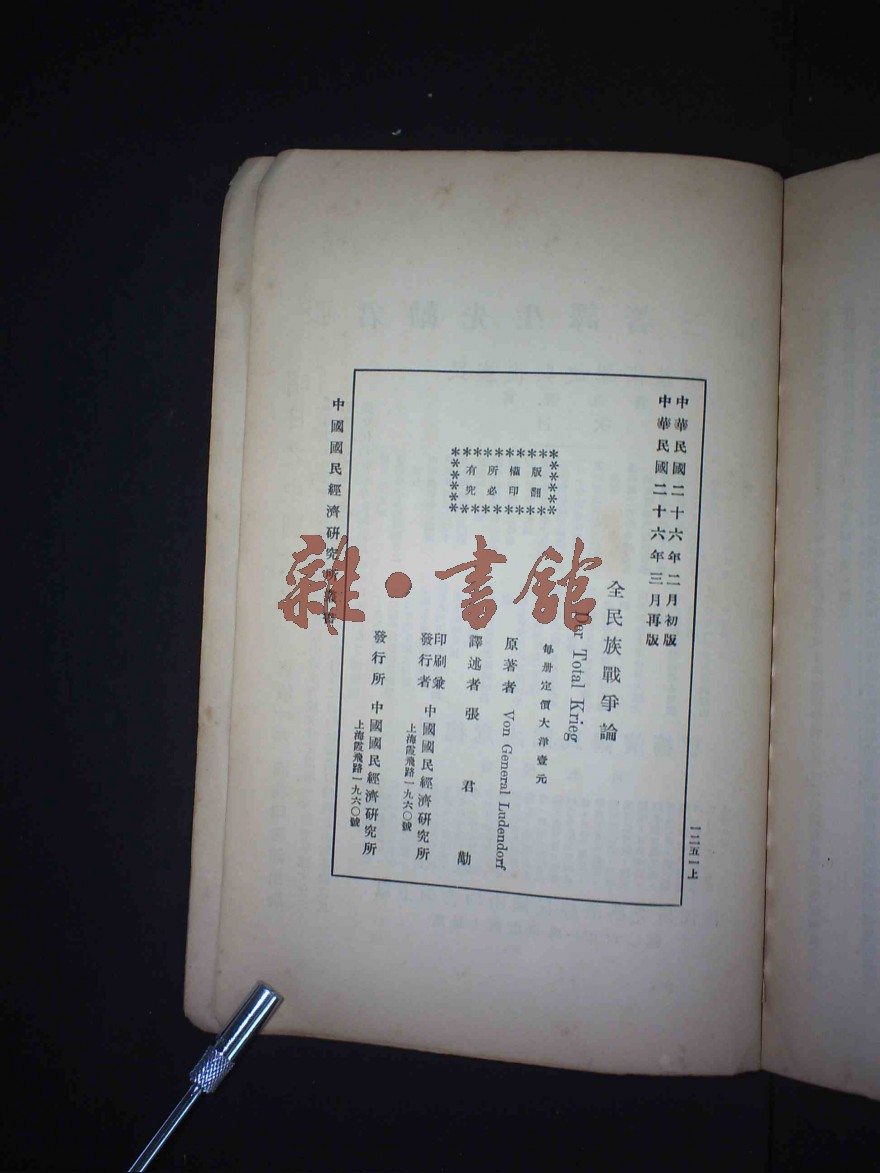 中華民國二十六年二月初版
中華民國二十六年三月再版
一二五一上
全民族戰爭論
Der Total Krieg
每册定價大洋壹元
版權所有
翻印必究
原著者 Von General Ludendorf
譯述者 張君勱
印刷兼發行者 中國國民經濟研究所
上海霞飛路一九六〇號
發行所 中國國民經濟研究所
上海霞飛路一九六〇號
中國國民經濟研究所叢書
雜·書館